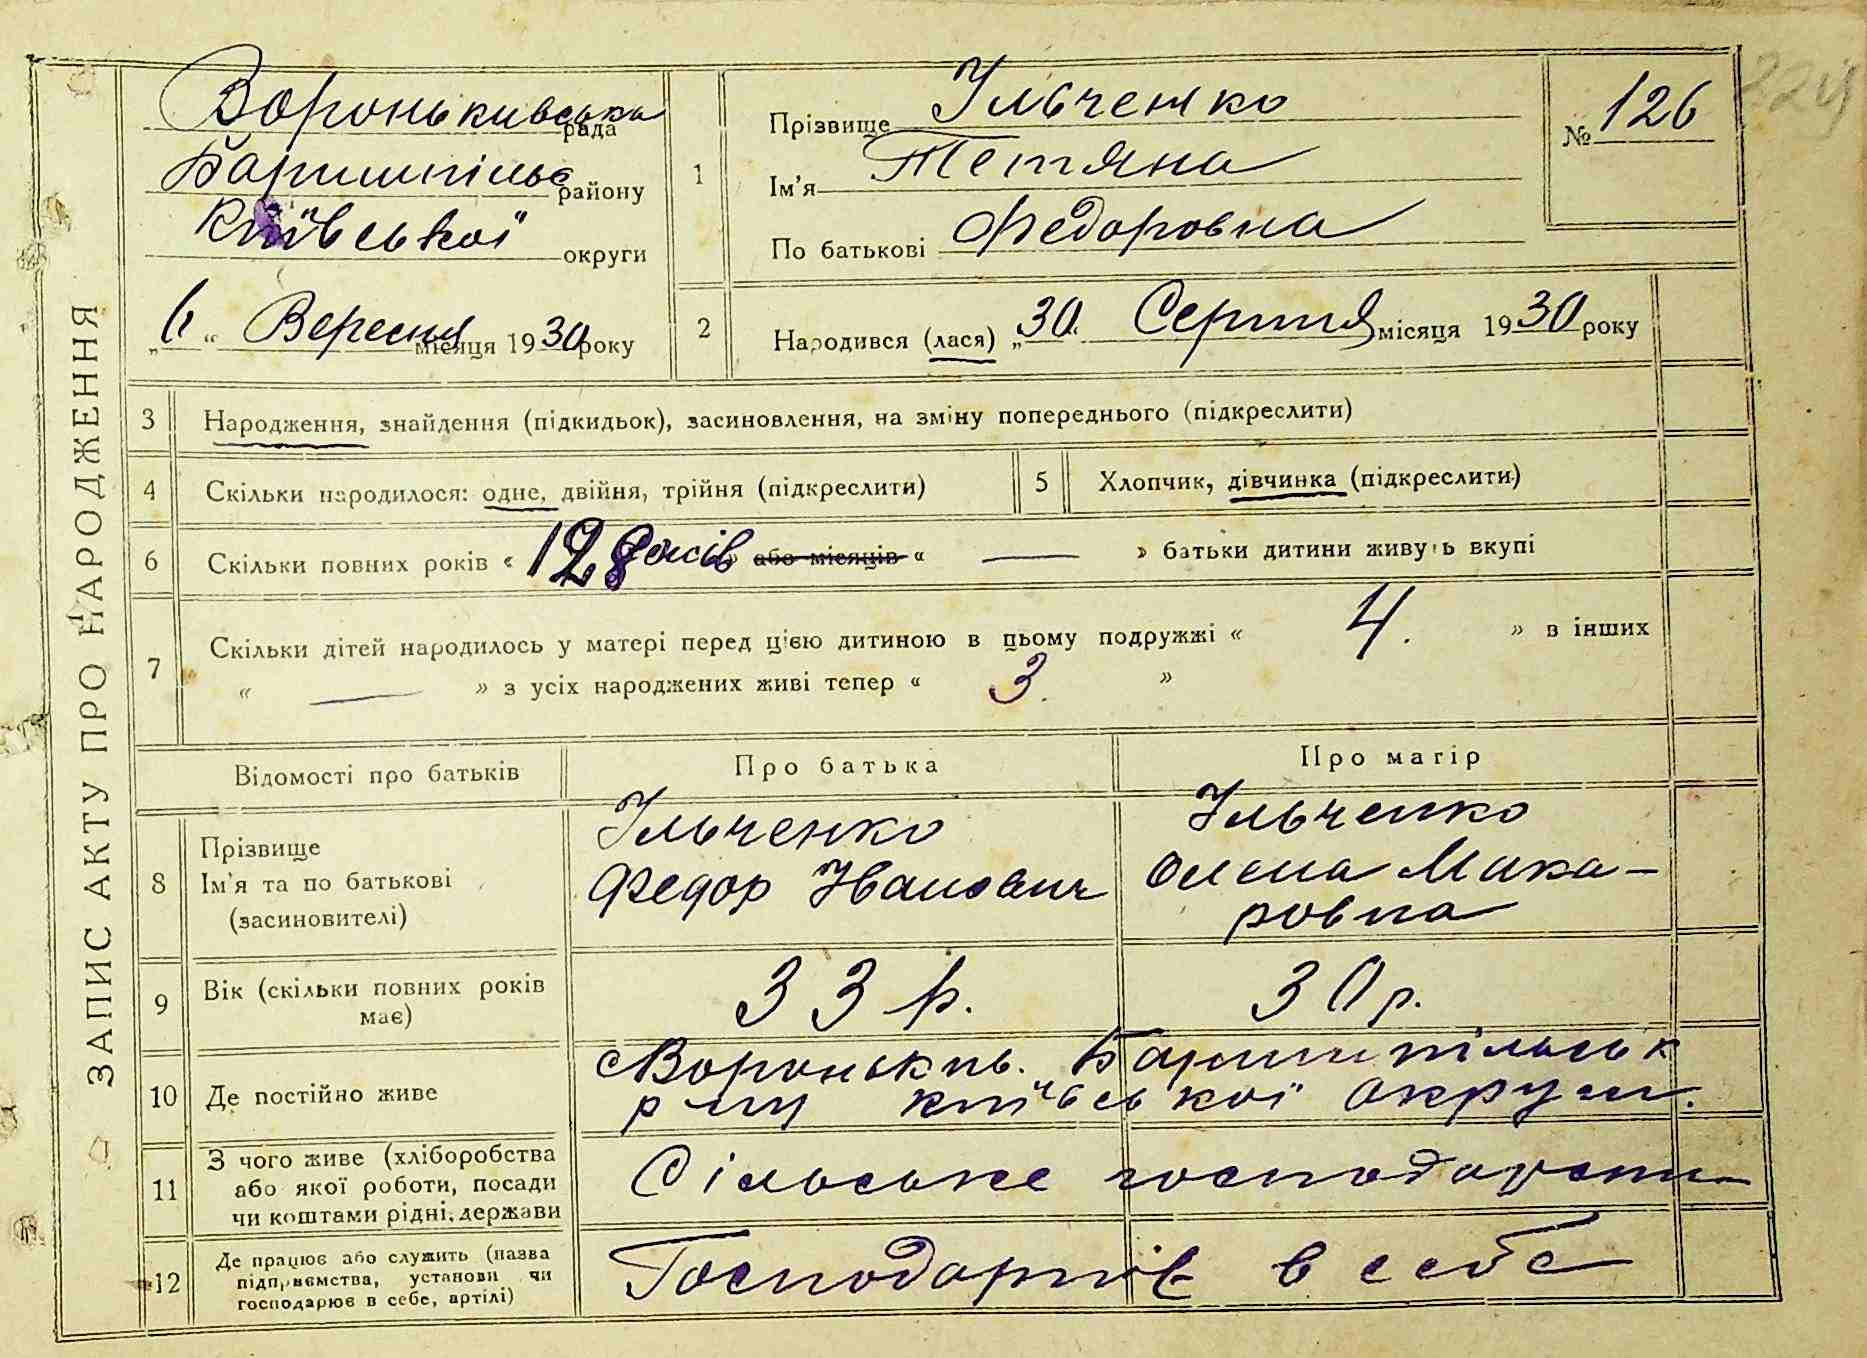 ЗАПИС АКТУ ПРО НАРОДЖЕННЯ
224
Вороньківська рада
Баришпільс району
Київської округи
„6“ Вересня місяця 1930 року
1
Прізвище Ільченко
Ім'я Тетяна
По батькові Федоровна
№ 126
2 Народився (лася) „30“ Серпня місяця 1930 року
3 Народження, знайдення (підкидьок), засиновлення, на зміну попереднього (підкреслити)
4 Скільки народилося: одне, двійня, трійня (підкреслити)
5 Хлопчик, дівчинка (підкреслити)
6 Скільки повних років « 12 років » або місяців « — » батьки дитини живуть вкупі
7 Скільки дітей народилось у матері перед цією дитиною в цьому подружжі « 4. » в інших
« — » з усіх народжених живі тепер « 3. »
Відомості про батьків Про батька Про матір
8 Прізвище
Ім'я та по батькові
(засиновителі)
Ільченко
Федор Іванович
Ільченко
Олена Мака-
ровна
9 Вік (скільки повних років
має)
33 р. 30 р.
10 Де постійно живе
с Вороньків. Баришпільськ
р-ну Київської округи.
11 З чого живе (хліборобства
або якої роботи, посади
чи коштами рідні, держави
Сільське господарств
12 Де працює або служить (назва
підприємства, установи чи
господарює в себе, артілі)
Господарює в себе